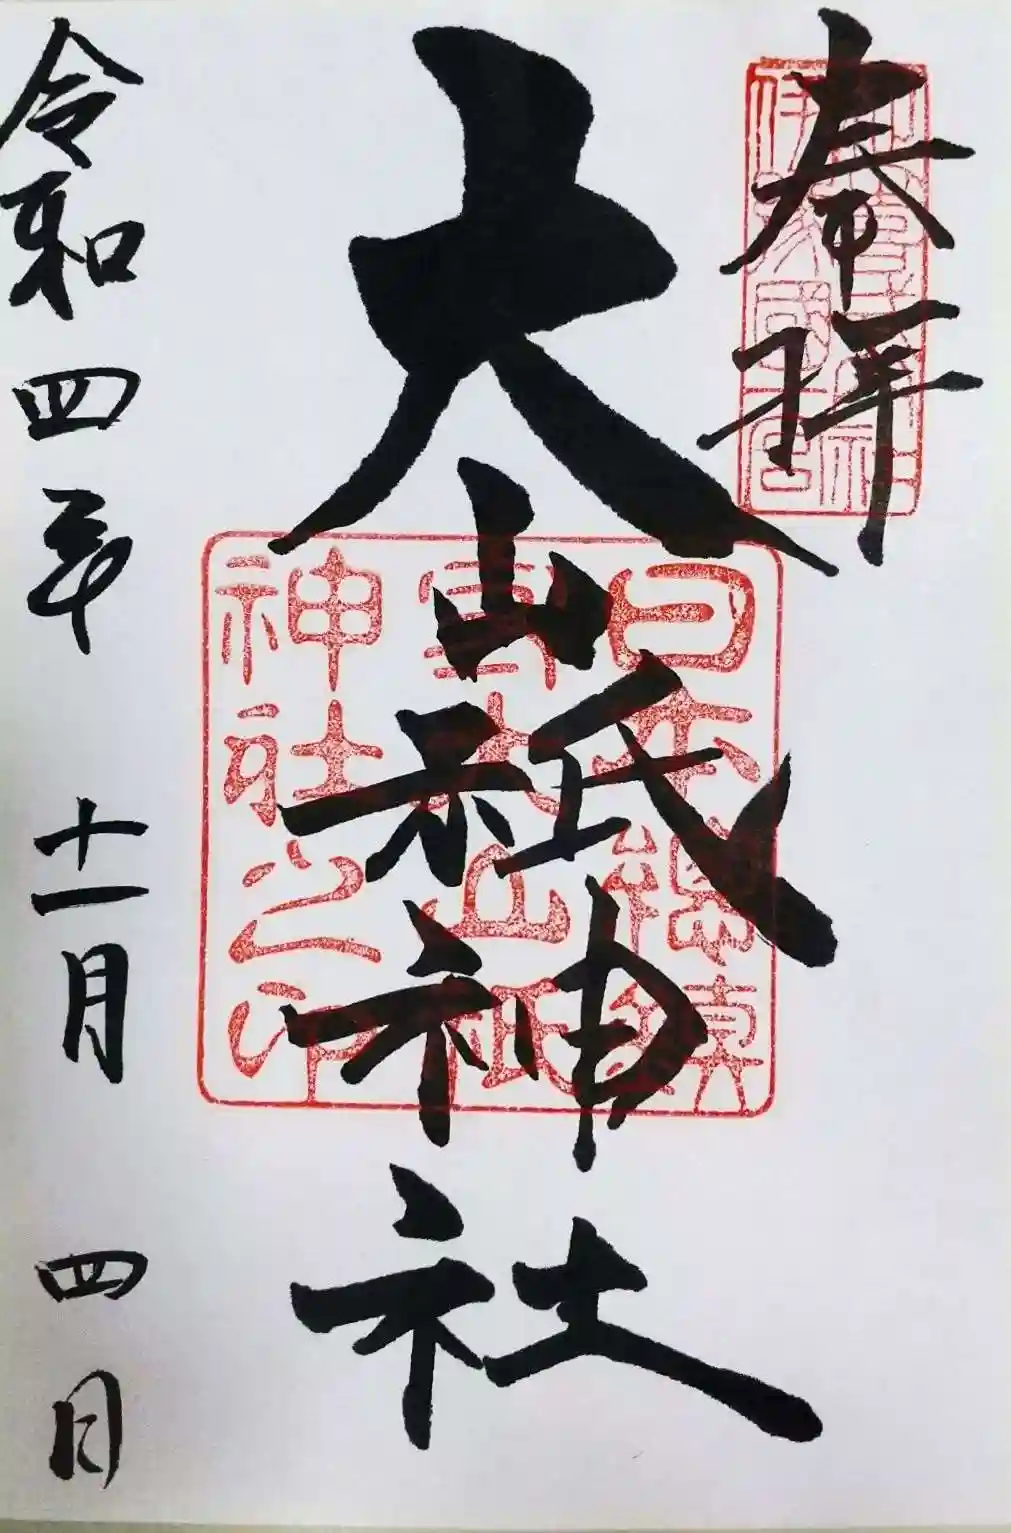 奉拝
伊予國一宮
大山祇神社
日本總鎮
守大山祇
神社之印
令和四年十一月四日